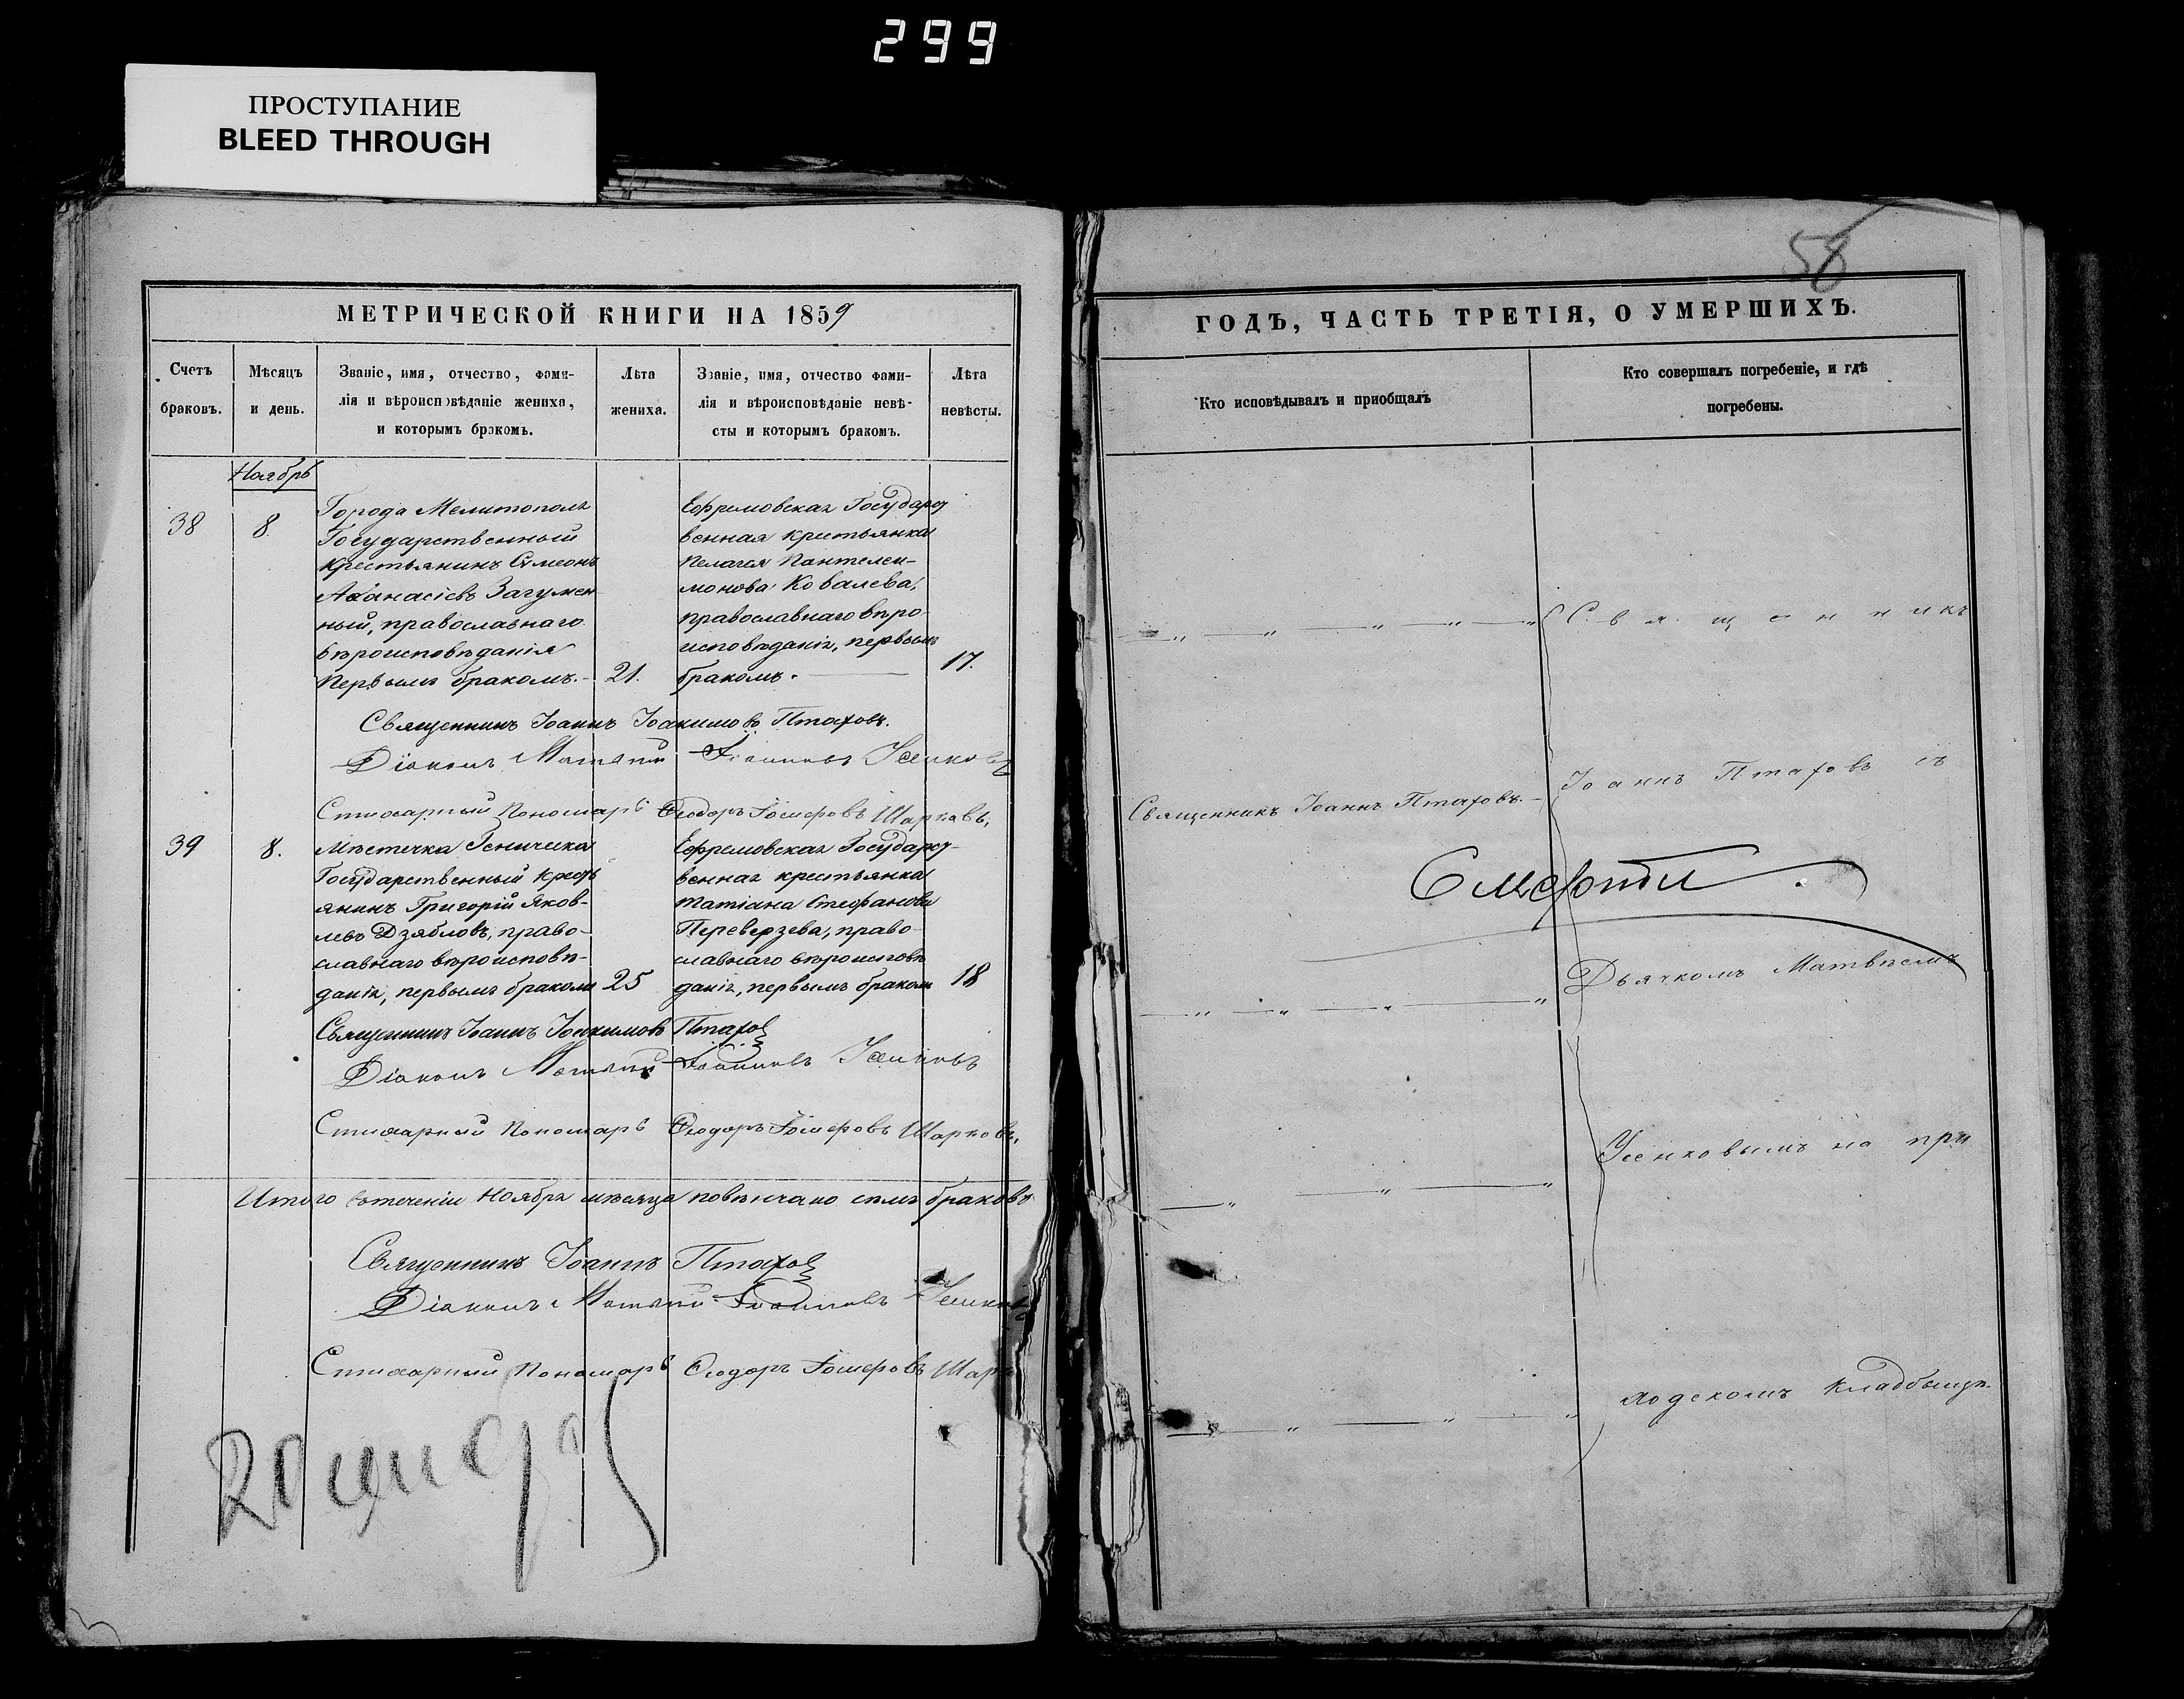 299
ПРОСТУПАНИЕ
BLEED THROUGH
МЕТРИЧЕСКОЙ КНИГИ НА 1859
Счетъ браковъ.
Мѣсяцъ и день.
Званіе, имя, отчество, фами-
лія и вѣроисповѣданіе жениха,
и которымъ бракомъ.
Лѣта жениха.
Званіе, имя, отчество фами-
лія и вѣроисповѣданіе невѣ-
сты и которымъ бракомъ.
Лѣта невѣсты.
Ноябрь
38
8.
Города Мелитополя
Государственный
крестьянинъ Симеонъ
Аѳанасіевъ Загумен
ный, православнаго
вѣроисповѣданія
первымъ бракомъ.
21.
Ефремовская Государст
венная крестьянка
Пелагея Пантелеи-
монова Ковалева,
православнаго вѣро-
исповѣданія, первымъ
бракомъ.
17.
Священникъ Іоаннъ Іоакимовъ Птаховъ.
Діаконъ Матѳій Іоанновъ Усенковъ
Стихарный Пономарь Ѳеодоръ Шарковъ,
39
8.
Мѣстечка Геническа
Государственный Кресть
янинъ Григорій Яков-
левъ Дзябловъ, право-
славнаго вѣроисповѣ-
данія, первымъ бракомъ
25
Ефремовская Государст-
венная крестьянка
Татіана Стефанова
Переверзева, право-
славнаго вѣроисповѣ
данія, первымъ бракомъ
18
Священникъ Іоаннъ Іоакимовъ Птаховъ
Діаконъ Матѳій Іоанновъ Усенковъ
Стихарный Пономарь Ѳеодоръ Шарковъ,
Итого втеченіи Ноября мѣсяца повѣнчано семь браковъ
Священникъ Іоаннъ Птаховъ
Діаконъ Матѳій Іоанновъ Усенковъ
Стихарный Пономарь Ѳеодоръ Шарк
58
ГОДЪ, ЧАСТЬ ТРЕТІЯ, О УМЕРШИХЪ.
Кто исповѣдывалъ и пріобщалъ
Кто совершалъ погребеніе, и гдѣ
погребены.
Священникъ
Священникъ Іоаннъ Птаховъ.
Іоаннъ Птаховъ съ
Смерти
Дьячкомъ Матвѣемъ
Усенковымъ на при
ходскомъ кладбищѣ.